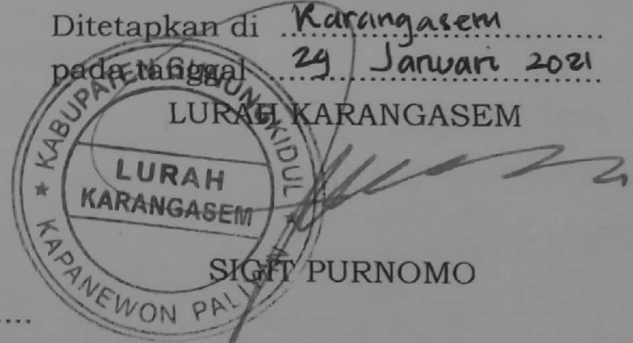 Ditetapkan di Karangasem
pada tanggal 29 Januari 2021
LURAH KARANGASEM
KABUPATEN GUNUNGKIDUL
LURAH
KARANGASEM
KAPANEWON PALIYAN
SIGIT PURNOMO